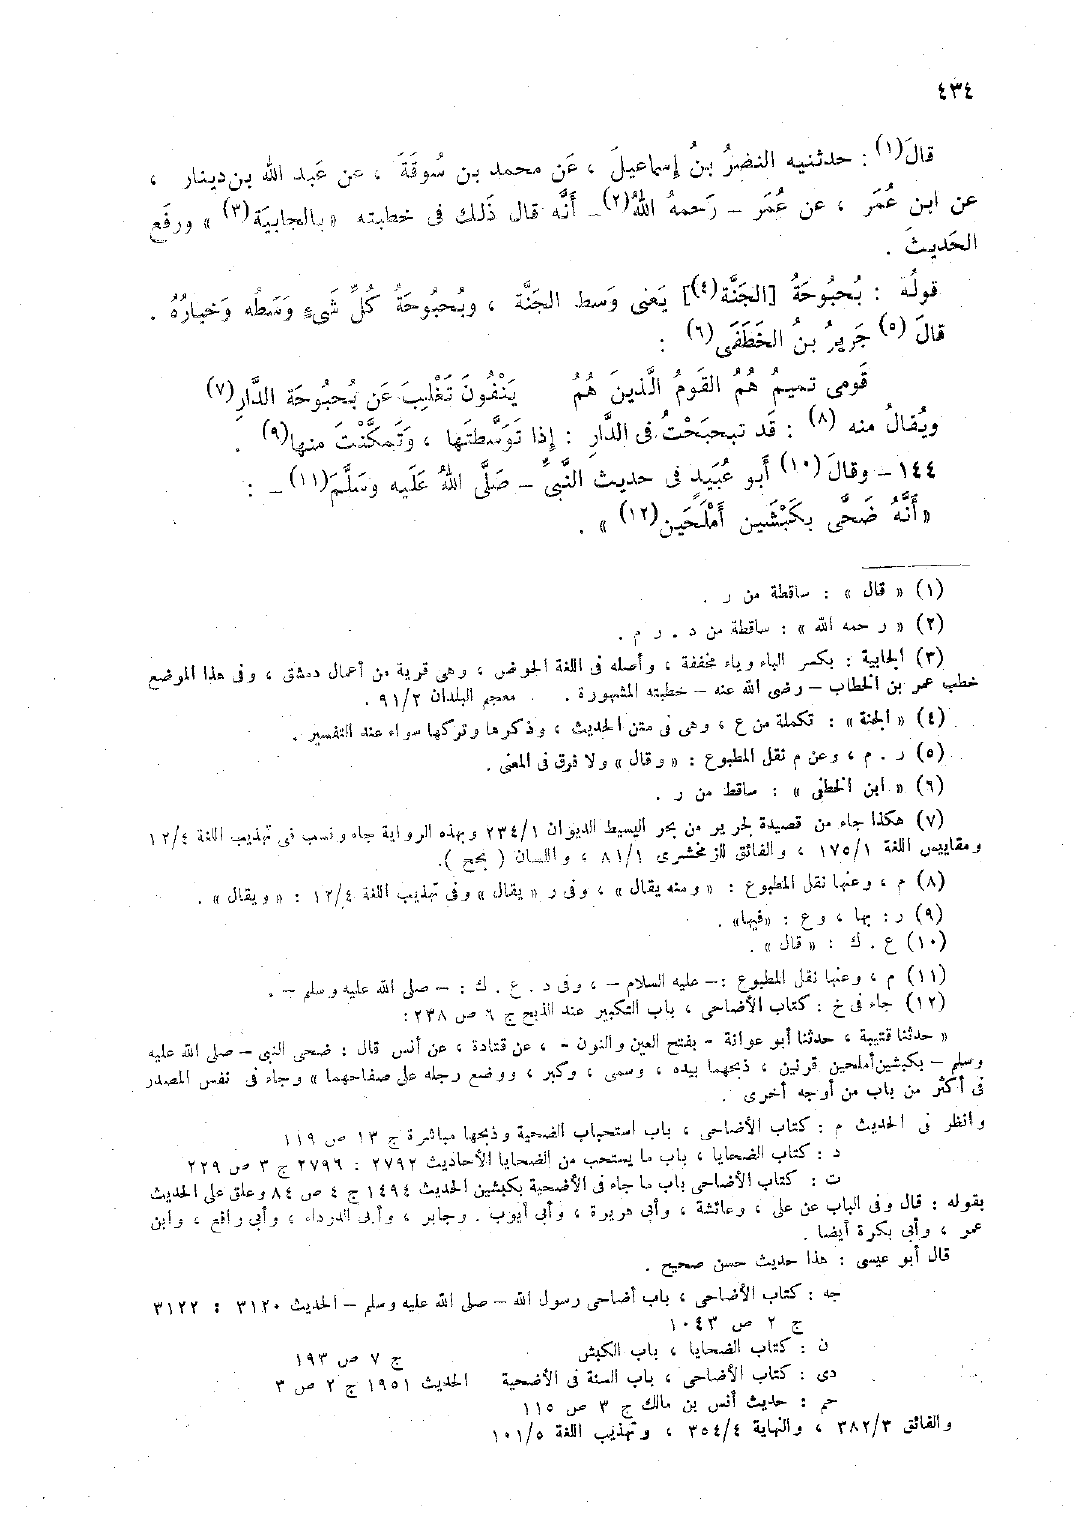 ٤٣٤
قالَ(١) : حدثنيه النضرُ بنُ إسماعيلَ ، عَن محمد بن سُوقَةَ ، عن عَبد الله بن دينار ،
عن ابن عُمَر ، عن عُمَر – رَحمهُ اللهُ(٢)– أَنَّه قال ذَلك فى خطبته «بالجابيَة(٣)» ورفَع
الحَديثَ .
قولُه : بُحبُوحَةُ [الجَنَّة(٤)] يَعنى وَسط الجَنَّة ، وبُحبُوحَةُ كُلِّ شَىءٍ وَسَطُه وَخيارُهُ .
قالَ (٥) جَريرُ بنُ الخَطَفَى(٦) :
قَومى تميمُ هُمُ القَومُ الَّذينَ هُمُ يَنْفُونَ تَغْلِيبَ عَن بُحبُوحَة الدَّارِ(٧)
ويُقالُ منه (٨) : قَد تبحبَحْتُ فى الدَّارِ : إذا تَوَسَّطتَها ، وَتَمكَّنْتَ منها(٩) .
١٤٤ – وقالَ (١٠) أَبو عُبَيدٍ فى حديث النَّبىِّ – صَلَّى اللهُ عَلَيه وسَلَّمَ(١١)– :
«أَنَّهُ ضَحَّى بكَبْشَين أَمْلَحَين(١٢)» .
(١) « قال » : ساقطة من ر .
(٢) « رحمه الله » : ساقطة من د . ر م .
(٣) الجابية : بكسر الباء وياء مخففة ، وأصله فى اللغة الحوض ، وهى قرية من أعمال دمشق ، وفى هذا الموضع
خطب عمر بن الخطاب – رضى الله عنه – خطبته المشهورة . معجم البلدان ٩١/٢ .
(٤) « الجنة » : تكملة من ع ، وهى فى متن الحديث ، وذكرها وتركها سواء عند التفسير .
(٥) ر . م ، وعن م نقل المطبوع : «وقال» ولا فرق فى المعنى .
(٦) « ابن الخطفى » : ساقط من ر .
(٧) هكذا جاء من قصيدة لجرير من بحر البسيط الديوان ٢٣٤/١ وبهذه الرواية جاء ونسب فى تهذيب اللغة ١٢/٤
ومقاييس اللغة ١٧٥/١ ، والفائق للزمخشرى ٨١/١ ، واللسان ( بحح ).
(٨) م ، وعنها نقل المطبوع : «ومنه يقال» ، وفى ر «يقال» وفى تهذيب اللغة ١٢/٤ : «ويقال» .
(٩) ر: بها ، وع : «فيها» .
(١٠) ع . ك : « قال » .
(١١) م ، وعنها نقل المطبوع :– عليه السلام – ، وفى د . ع . ك : – صلى الله عليه وسلم – .
(١٢) جاء فى خ : كتاب الأضاحى ، باب التكبير عند الذبح ج ٦ ص ٢٣٨ :
« حدثنا قتيبة ، حدثنا أبو عوانة – بفتح العين والنون – ، عن قتادة ، عن أنس قال : ضحى النبى – صلى الله عليه
وسلم – بكبشين أملحين قرنين ، ذبحهما بيده ، وسمى ، وكبر ، ووضع رجله على صفاحهما » وجاء فى نفس المصدر
فى أكثر من باب من أوجه أخرى .
وانظر فى الحديث م : كتاب الأضاحى ، باب استحباب الضحية وذبحها مباشرة ج ١٣ ص ١١٩
د : كتاب الضحايا ، باب ما يستحب من الضحايا الأحاديث ٢٧٩٢ : ٢٧٩٦ ج ٣ ص ٢٢٩
ت : كتاب الأضاحى باب ما جاء فى الأضحية بكبشين الحديث ١٤٩٤ ج ٤ ص ٨٤ وعلق على الحديث
بقوله : قال وفى الباب عن على ، وعائشة ، وأبى هريرة ، وأبى أيوب . وجابر ، وأبى الدرداء ، وأبى رافع ، وابن
عمر ، وأبى بكرة أيضا .
قال أبو عيسى : هذا حديث حسن صحيح .
جه : كتاب الأضاحى ، باب أضاحى رسول الله – صلى الله عليه وسلم – الحديث ٣١٢٠ : ٣١٢٢
ج ٢ ص ١٠٤٣
ن : كتاب الضحايا ، باب الكبش ج ٧ ص ١٩٣
دى : كتاب الأضاحى ، باب السنة فى الأضحية الحديث ١٩٥١ ج ٢ ص ٣
حم : حديث أنس بن مالك ج ٣ ص ١١٥
والفائق ٣٨٢/٣ ، والنهاية ٣٥٤/٤ ، وتهذيب اللغة ١٠١/٥